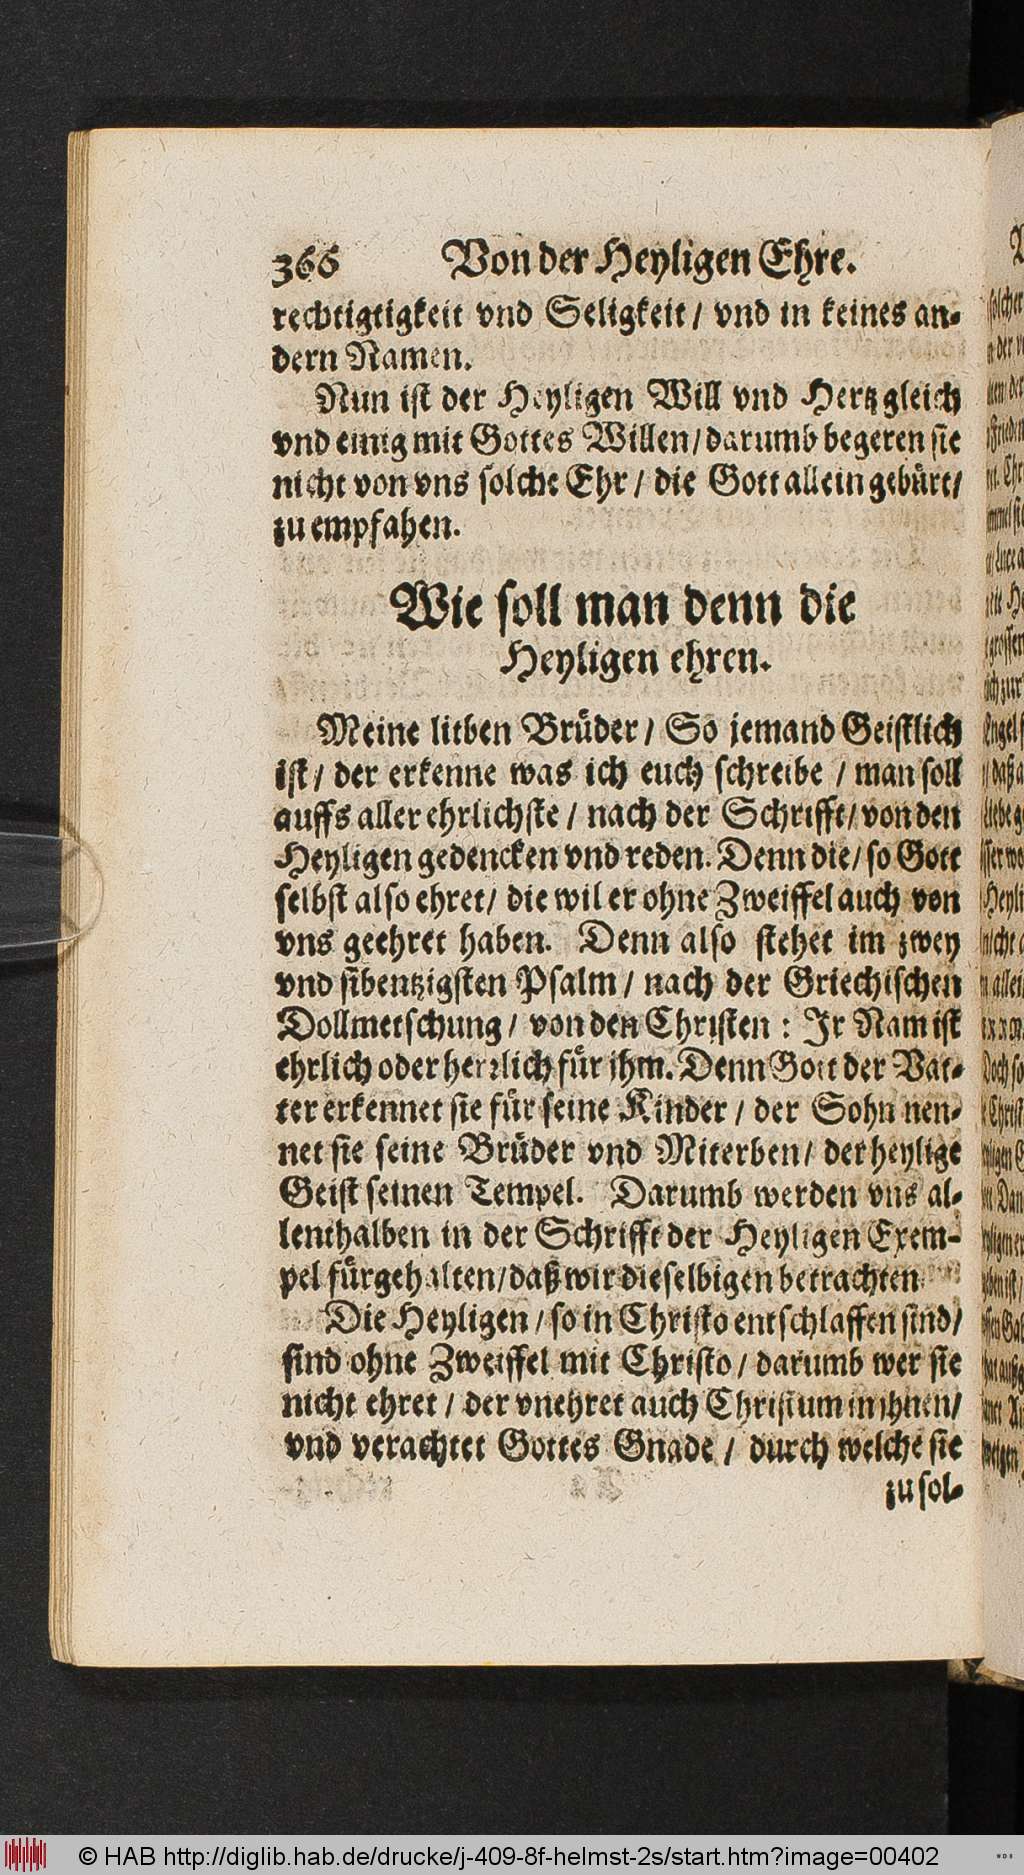 366 Von der Heyligen Ehre.
rechtigtigkeit vnd Seligkeit / vnd in keines an-
dern Namen.
Nun ist der Heyligen Will vnd Hertz gleich
vnd einig mit Gottes Willen / darumb begeren sie
nicht von vns solche Ehr / die Gott allein gebürt /
zu empfahen.
Wie soll man denn die
Heyligen ehren.
Meine lieben Brüder / So jemand Geistlich
ist / der erkenne was ich euch schreibe / man soll
auffs aller ehrlichste / nach der Schrifft / von den
Heyligen gedencken vnd reden. Denn die / so Gott
selbst also ehret / die wil er ohne Zweiffel auch von
vns geehret haben. Denn also stehet im zwey
vnd sibentzigsten Psalm / nach der Griechischen
Dollmetschung / von den Christen : Jr Nam ist
ehrlich oder herrlich für jhm. Denn Gott der Vat-
ter erkennet sie für seine Kinder / der Sohn nen-
net sie seine Brüder vnd Miterben / der heylige
Geist seinen Tempel. Darumb werden vns al-
lenthalben in der Schrifft der Heyligen Exem-
pel fürgehalten / daß wir dieselbigen betrachten.
Die Heyligen / so in Christo entschlaffen sind /
sind ohne Zweiffel mit Christo / darumb wer sie
nicht ehret / der vnehret auch Christum in jhnen /
vnd verachtet Gottes Gnade / durch welche sie
zu sol-
© HAB http://diglib.hab.de/drucke/j-409-8f-helmst-2s/start.htm?image=00402